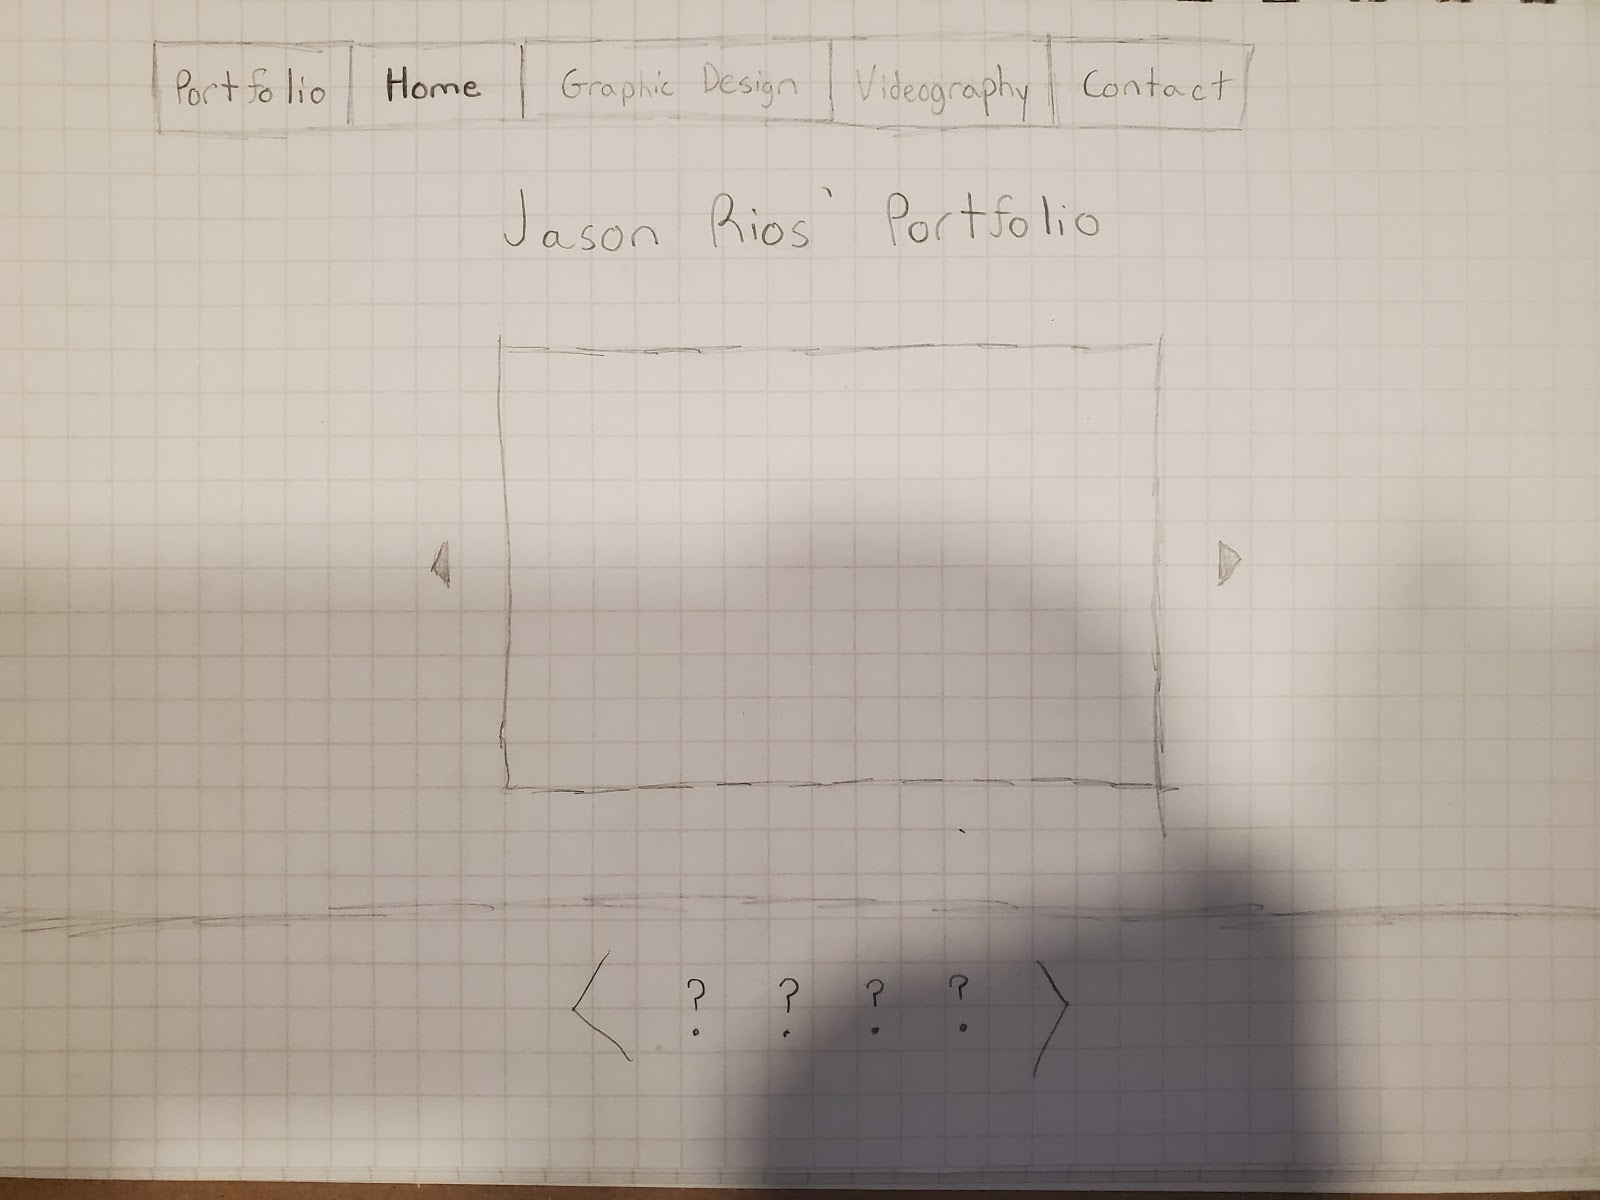 Portfolio Home Graphic Design Videography Contact
Jason Rios' Portfolio
< ? ? ? ? >